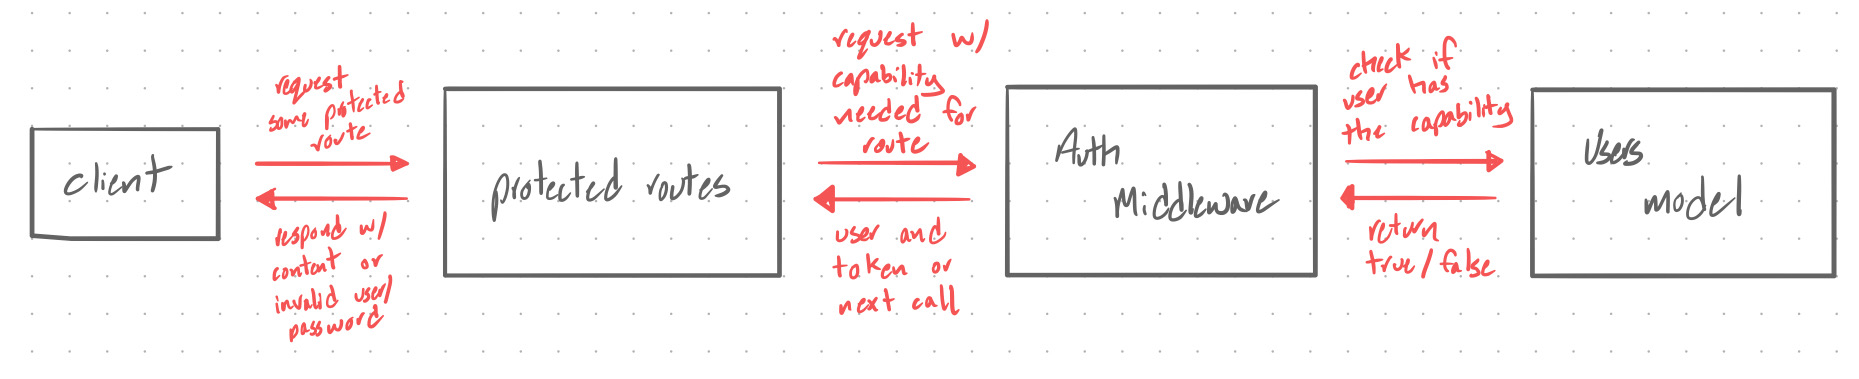 client
request
some protected
route
respond w/
content or
invalid user/
password
protected routes
request w/
capability
needed for
route
user and
token or
next call
Auth
Middleware
check if
user has
the capability
return
true/false
Users
model